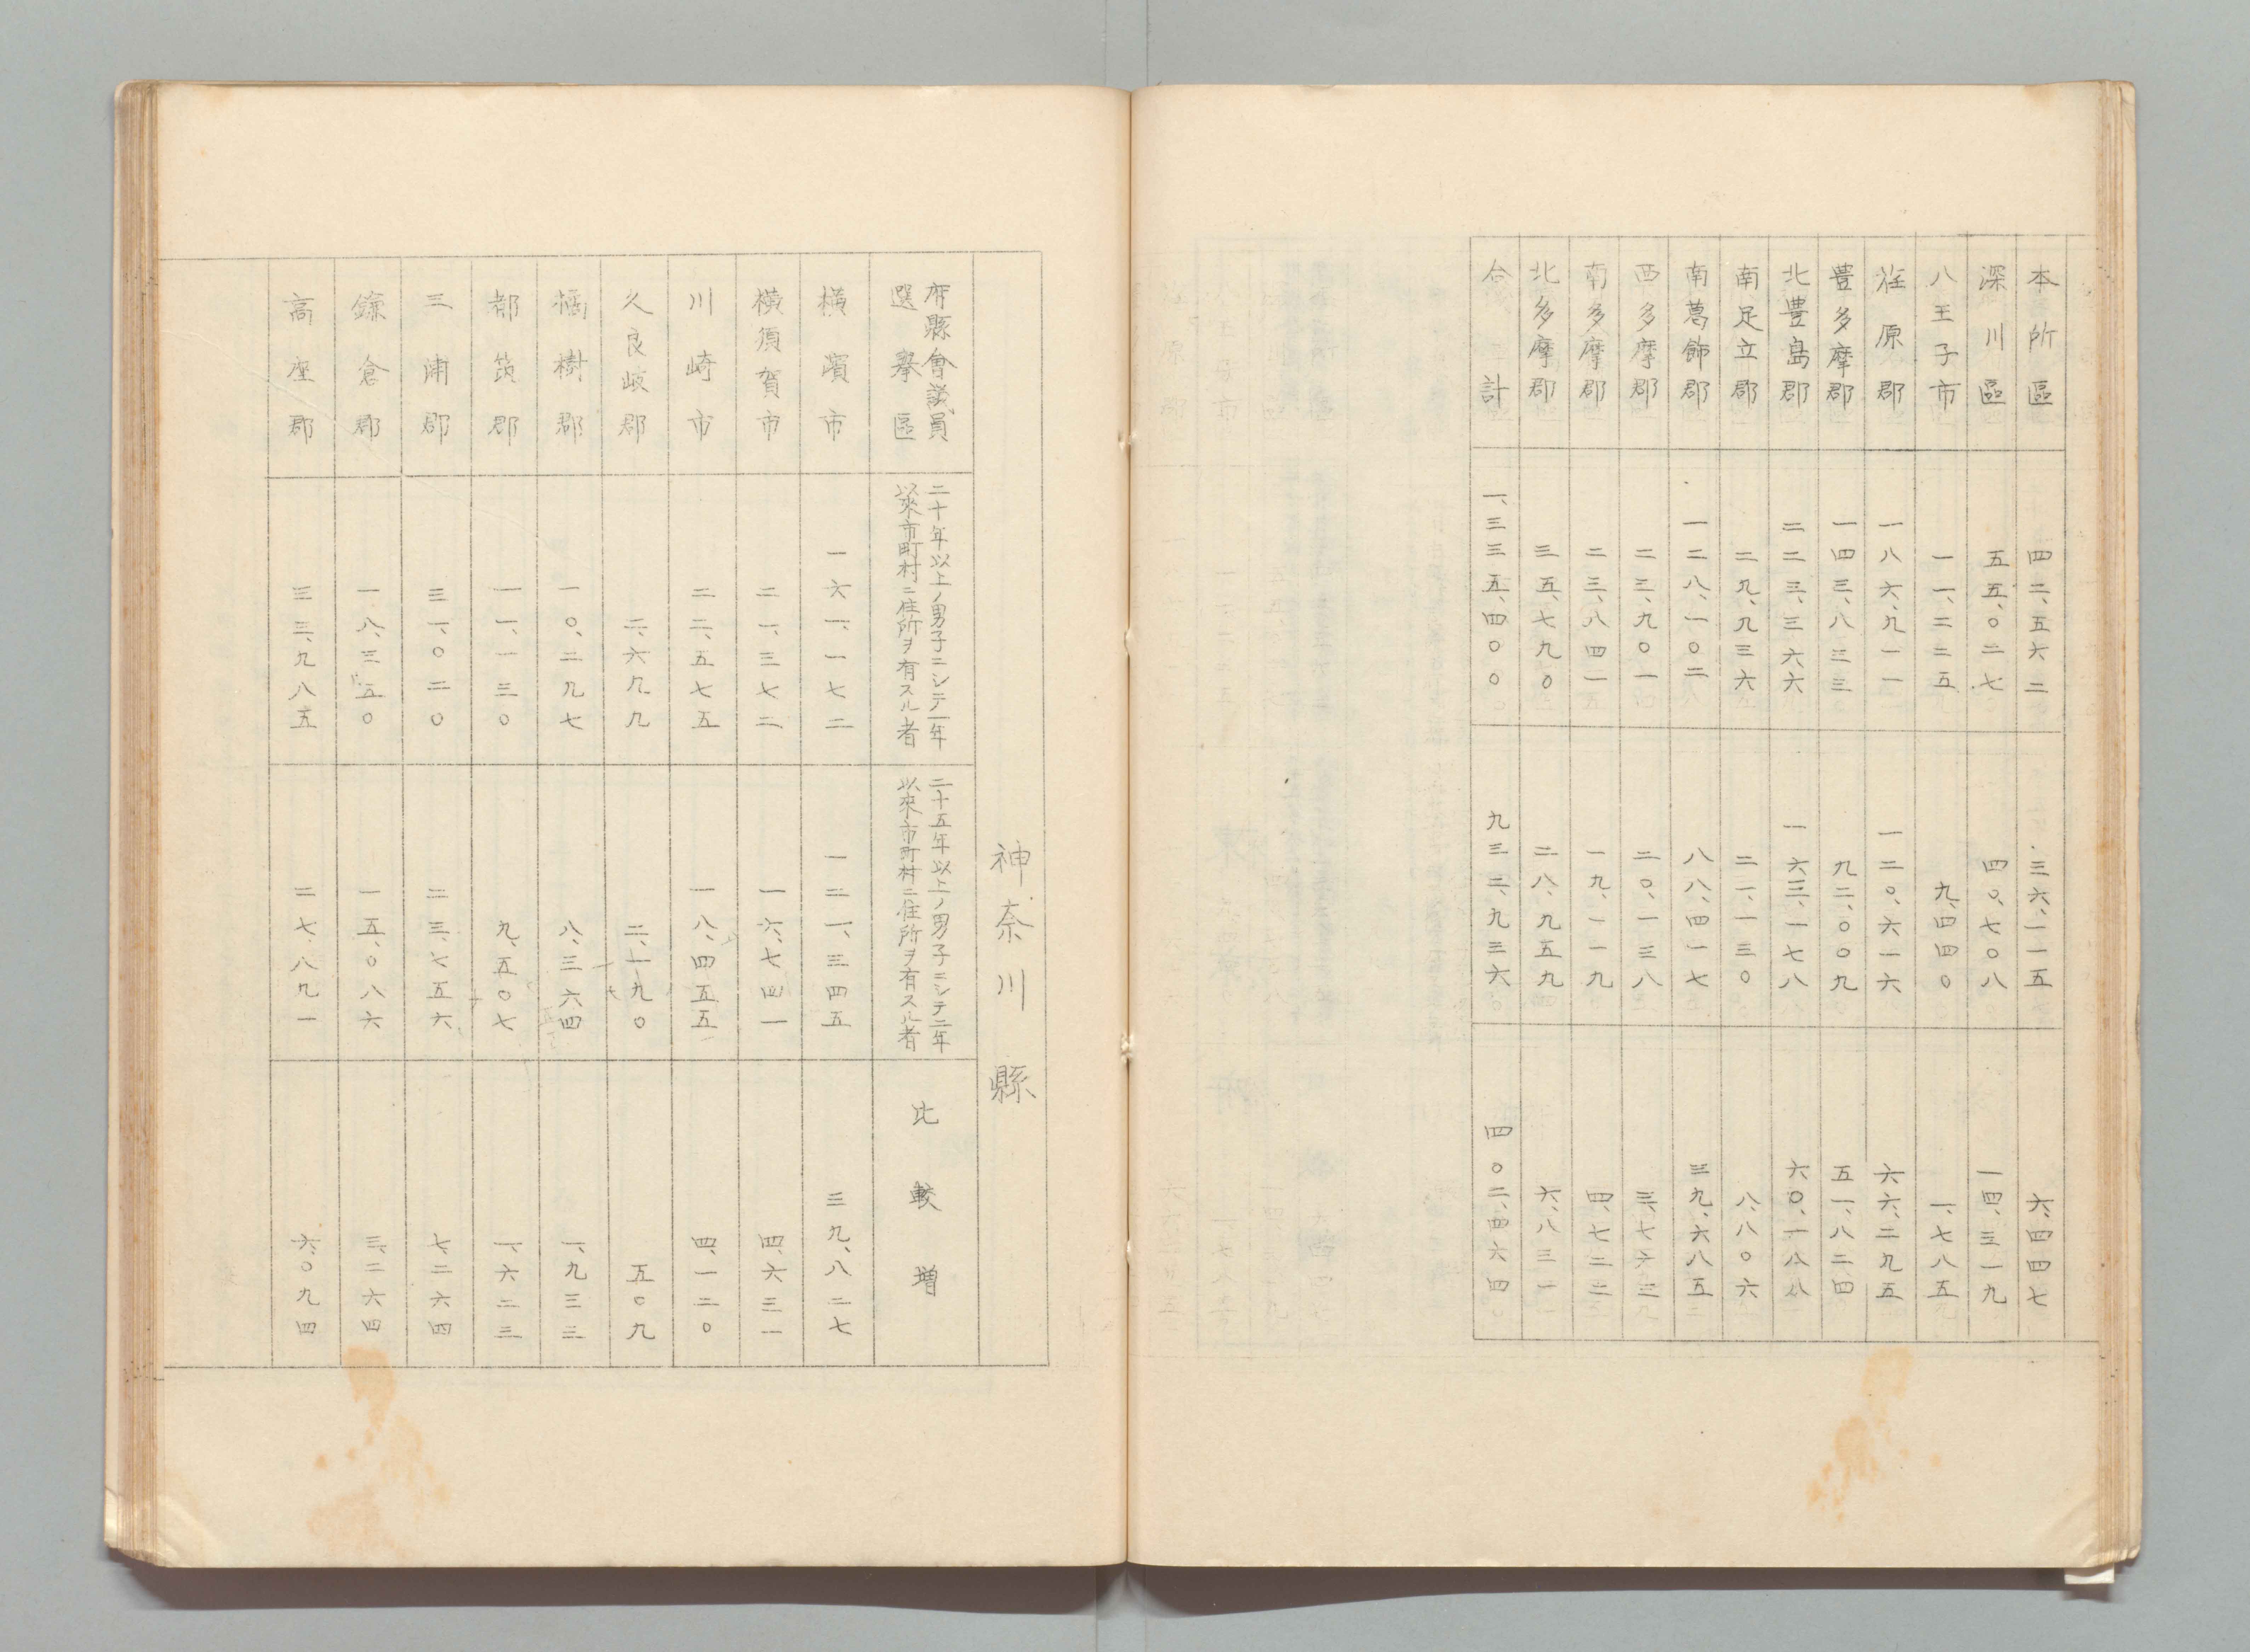 本所區 四二、五六二 三六、一一五 六、四四七
深川區 五五、〇二七 四〇、七〇八 一四、三一九
八王子市 一一、二二五 九、四四〇 一、七八五
荏原郡 一八六、九一一 一二〇、六一六 六六、二九五
豊多摩郡 一四三、八三三 九二、〇〇九 五一、八二四
北豊島郡 二二三、三六六 一六三、一七八 六〇、一八八
南足立郡 二九、九三六 二一、一三〇 八、八〇六
南葛飾郡 一二八、一〇二 八八、四一七 三九、六八五
西多摩郡 二三、九〇一 二〇、一三八 三、七六三
南多摩郡 二三、八四一 一九、一一九 四、七二二
北多摩郡 三五、七九〇 二八、九五九 六、八三一
合計 一、三三五、四〇〇 九三二、九三六 四〇二、四六四
神奈川縣
府縣會議員
選擧區
二十年以上ノ男子ニシテ一年
以來市町村ニ住所ヲ有スル者
二十五年以上ノ男子ニシテ二年
以來市町村ニ住所ヲ有スル者
比較増
横濱市 一六一、一七二 一二一、三四五 三九、八二七
横須賀市 二一、三七二 一六、七四一 四、六三一
川崎市 二二、五七五 一八、四五五 四、一二〇
久良岐郡 二、六九九 二、一九〇 五〇九
橘樹郡 一〇、二九七 八、三六四 一、九三三
都筑郡 一一、一三〇 九、五〇七 一、六二三
三浦郡 三一、〇二〇 二三、七五六 七、二六四
鎌倉郡 一八、三五〇 一五、〇八六 三、二六四
高座郡 三三、九八五 二七、八九一 六、〇九四